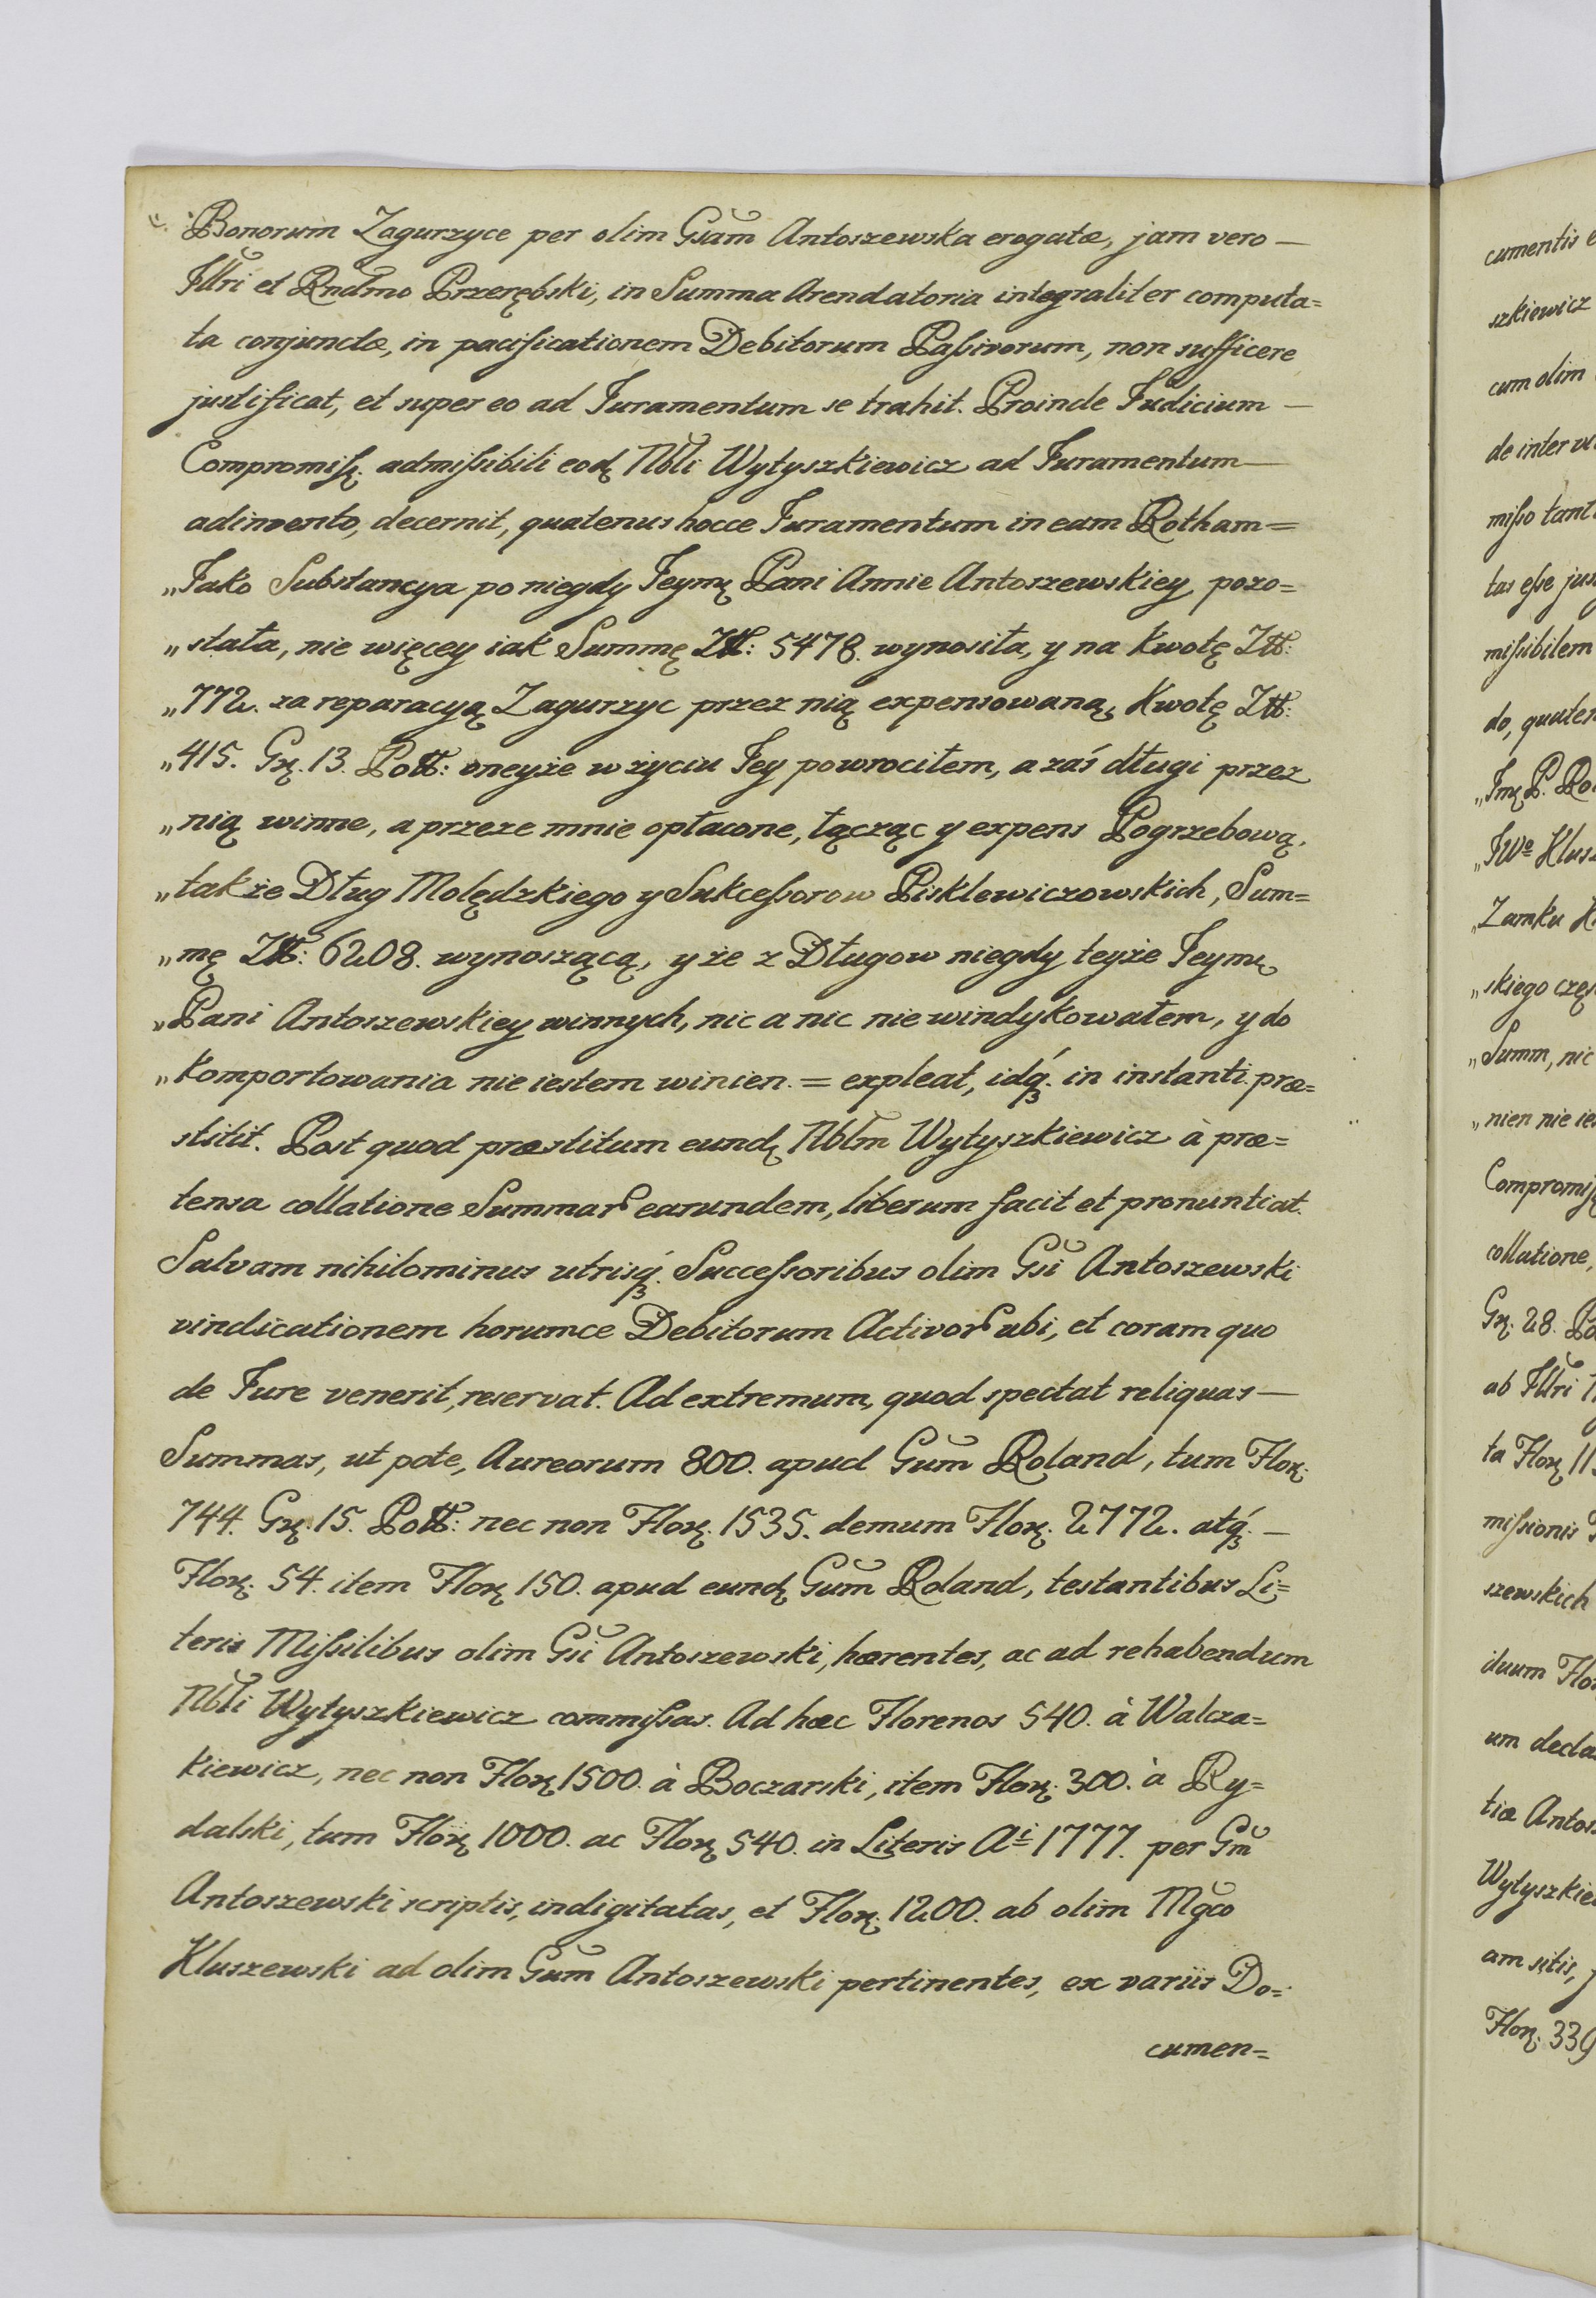 Bonorum Zagurzyce per olim Gsam Antoszewska erogatæ, jam vero —
Illri et Rndmo Przerębski, in Summa Arendatoria integraliter computa=
ta conjunctæ, in pacificationem Debitorum Paſsivorum, non sufficere
justificat, et super eo ad Juramentum se trahit. Proinde Judicium —
Compromiſs. admiſsibili eodę Nbli Wytyszkiewicz ad Juramentum —
adinvento, decernit, quatenus hocce Juramentum in eam Rotham =
„Jako Substancya po niegdy Jeymę Pani Annie Antoszewskiey pozo=
„stała, nie więcey iak Summę Złł: 5478. wynosiła, y na Kwotę Złł:
„772. za reparacyą Zagurzyc przez nią expensowaną, Kwotę Złł:
„415. Gę. 13. Poll: oneyże w życiu Jey powrociłem, a zaś długi przez
„nią winne, a przeze mnie opłacone, łącząc y expens Pogrzebową,
„także Dług Molędzkiego y Sukceſsorow Pisklewiczowskich, Sum=
„mę Złł: 6208. wynoszącą, y że z Długow niegdy teyże Jeymę
„Pani Antoszewskiey winnych, nic a nic nie windykowałem, y do
„Komportowania nie iestem winien. = expleat, idq́ꝫ. in instanti præ=
stitit. Post quod præstitum eundę Nblm Wytyszkiewicz à præ=
tensa collatione Summar earundem, liberum facit et pronuntiat.
Salvam nihilominus utrisq́ꝫ. Succeſsoribus olim Gsi Antoszewski
vindicationem horumce Debitorum Activor ubi, et coram quo
de Jure venerit, reservat. Ad extremum, quod spectat reliquas —
Summas, ut pote, Aureorum 800. apud Gum Roland, tum Florę.
744. Gę. 15. Poll: nec non Florę. 1535. demum Florę. 2772. atq́ꝫ. —
Florę. 54. item Florę 150. apud eundę Gum Roland, testantibus Li=
teris Miſsilibus olim Gsi Antoszewski, hærentes, ac ad rehabendum
Nbli Wytyszkiewicz commiſsas. Ad hæc Florenos 540. à Walcza=
kiewicz, nec non Florę 1500. à Boczarski, item Florę. 300. à Ry=
dalski, tum Florę 1000. ac Florę 540. in Literis Ai 1777. per Gm
Antoszewski scriptis, indigitatas, et Florę. 1200. ab olim Mgco
Kluszewski ad olim Gum Antoszewski pertinentes, ex variis Do=
cumen=
cumentis
szkiewicz
cum olim
de inter
miſso tant
tas eſse jus
miſsibilem
do, quaten
„Jmę P. Ro
„JWo Klusz
„Zamku
„skiego częs
„Summ, nic
„nien nie ie
Compromiſs
collatione,
Gę. 28. Po
ab Illri
ta Florę 11
miſsionis
szewskich
iduum Flo
um decla
tiæ Antos
Wytyszkie
am sitis,
Florę. 339